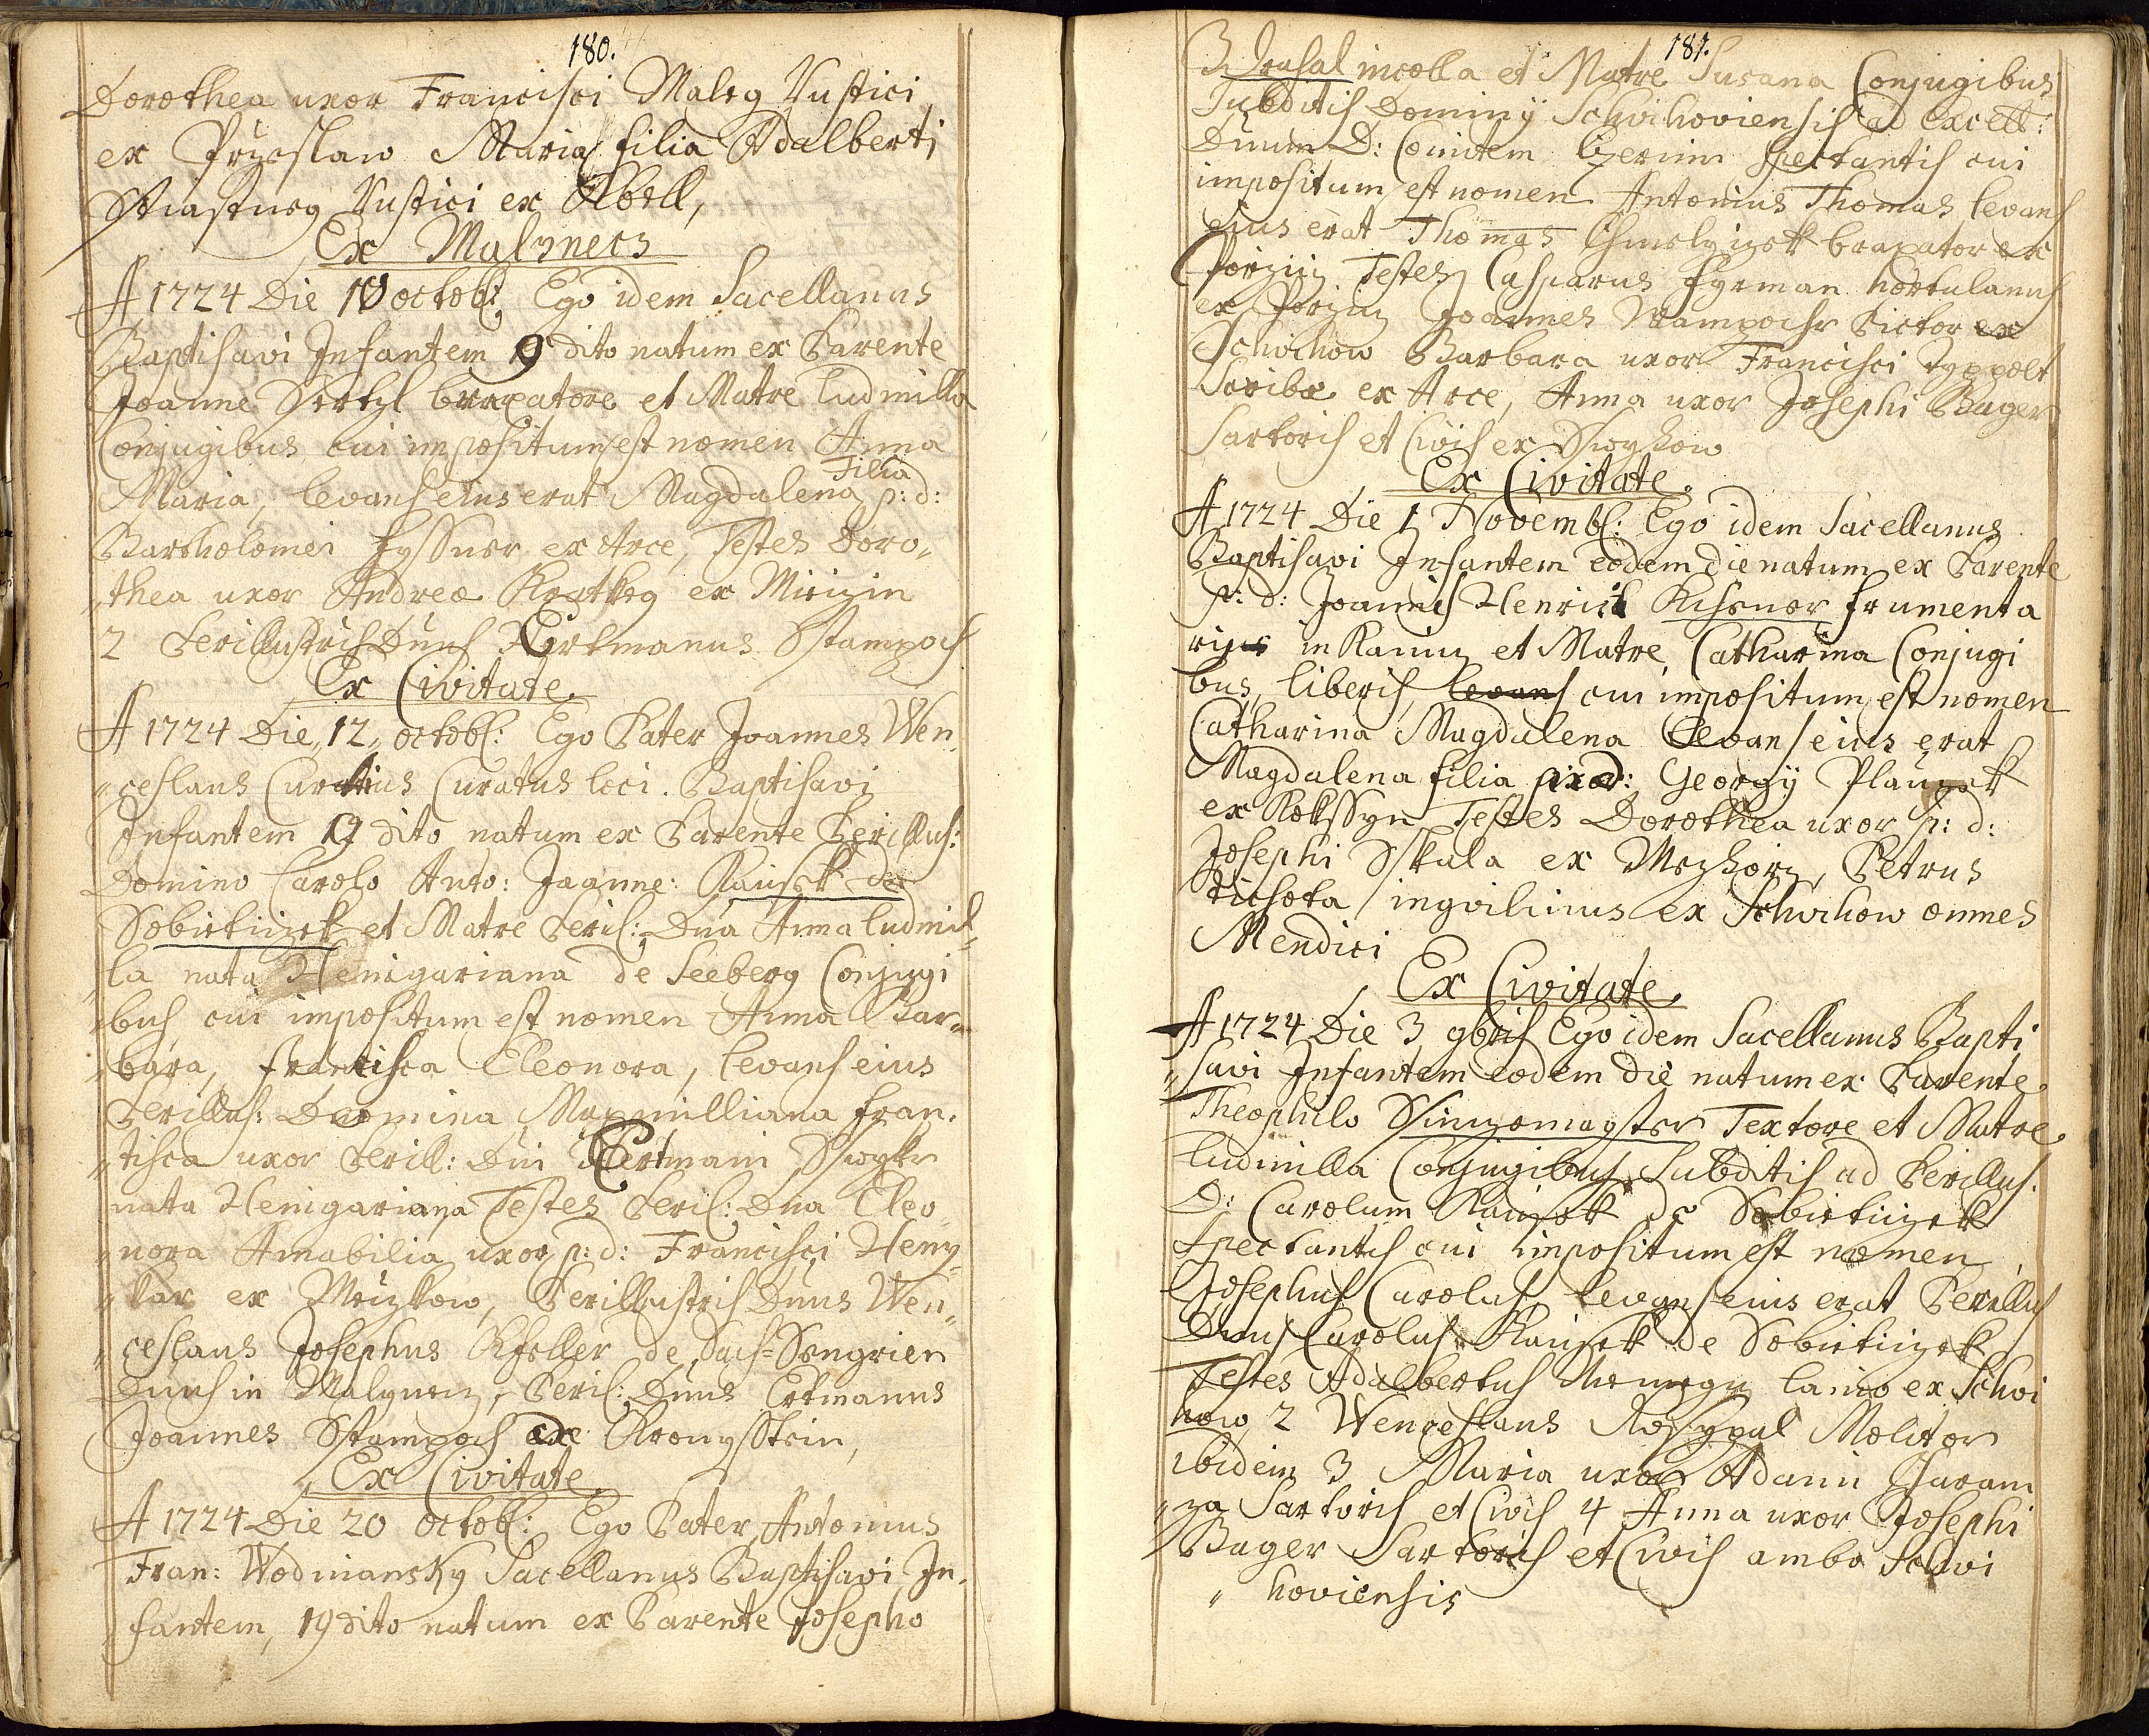 180.
Dorothea uxor Francisci Maleg Rustici
ex Przeslaw Maria filia Adalberti
Stiastneg Rustici ex Obell,
Ex Malynecz
A 1724 Die 10 octobl: Ego idem Sacellanus
Baptisavi Infantem 9 dito natum ex Parente
Joanne braxatore et Matre Ludmilla
Conjugibus cui impositum est nomen Anna
Maria, levans eius erat Magdalena Filia p: d:
Bartholomei Fyssner ex Arce, Testes Doro„
„thea uxor Andreæ Kratkeg ex Miecizin
2 Perillustris Duns Hertmanus Sstampoch
Ex Civitate
A 1724 Die„ 12„ octobl: Ego Pater Joannes Wen„
„ceslaus Curatus loci. Baptisavi
Infantem 12 dito natum ex Parente Perillus:
Domino Carolo Anto: Joanne: Kauzek de
Sobieticzek et Matre Peril: Dna Anna Ludmil„
„la nata Henigariana de Seeberg Conjugi
„bus cui impositum est nomen Anna Bar„
„bara, Francisca Eleonora, levans eius
Perillus: Domina Maxmilliana Fran„
„cisca uxor Perill: Dni Hertmani
nata Henigariana Testes Peril: Dna Eleo„
„nora Amabilia uxor p: d: Francisci Heny„
„kar ex Mezikow, Perillustris Dnus Wen„
„ceslaus Josephus Kfeller de Sach=Sengrien
Duns in Malynecz, Peril: Dnus Ertmanus
Joannes Sstampoch de Kronysstein,
Ex Civitate
A 1724 Die 20 octobl: Ego Pater Antonius
Fran: Wodniansky Sacellanus Baptisavi In„
„fantem, 19 dito natum ex Parente Josepho
181.
Drahal incolla et Matre Susana Conjugibus
Subditis Dominÿ Schvihoviensis ad Excell:
Dnum D: Comitem Czernin spectantis cui
impositum est nomen Antonius Thomas levans
eius erat Thomas Chmelyizek braxator ex
Porziy Testes Casparus Fyrman hortulanus
ex Porziy Joannes Wampochr Pictor ex
Schvihow Barbara uxor Francisci Typpelt
Scribæ ex Arce, Anna uxor Josephi Bager
Sartoris et Civis ex Swyhow
Ex Civitate.
A 1724 Die 1 Novembl: Ego idem Sacellanus
Baptisavi Infantem eodem die natum ex Parente
p: d: Joannis Henrici Kihsner frumenta
rius in Kaunz et Matre Catharina Conjugi
bus, liberis, levans cui impositum est nomen
Catharina Magdalena Levans eius erat
Magdalena filia Georgÿ Plauzek
ex Rokssyn Testes Dorothea uxor p: d:
Josephi Skala ex Mezhorz, Petrus
Tichota inqvilinus ex Schvihow omnes
Mendici
Ex Civitate
A 1724 Die 3 9bris Ego idem Sacellanus Bapti
„savi Infantem eodem die natum ex Parente
Theophilo Ssinczomayster Textore et Matre
Ludmilla Conjugibus Subditis ad Perillus:
D: Carolum Kauzek de Sobieticzek
Spectantis cui impositum est nomen
Josephus Carolus levans eius erat Perillus
Dnus Carolus Kauzek de Sobieticzek
Testes Adalbertus lanio ex Schvi
how, 2 Wenceslaus Rosypal Molitor
ibidem 3 Maria uxor Adami Charam
„za Sartoris et Civis 4 Anna uxor Josephi
Bager Sartoris et Civis ambo Schvi
„ hoviensis